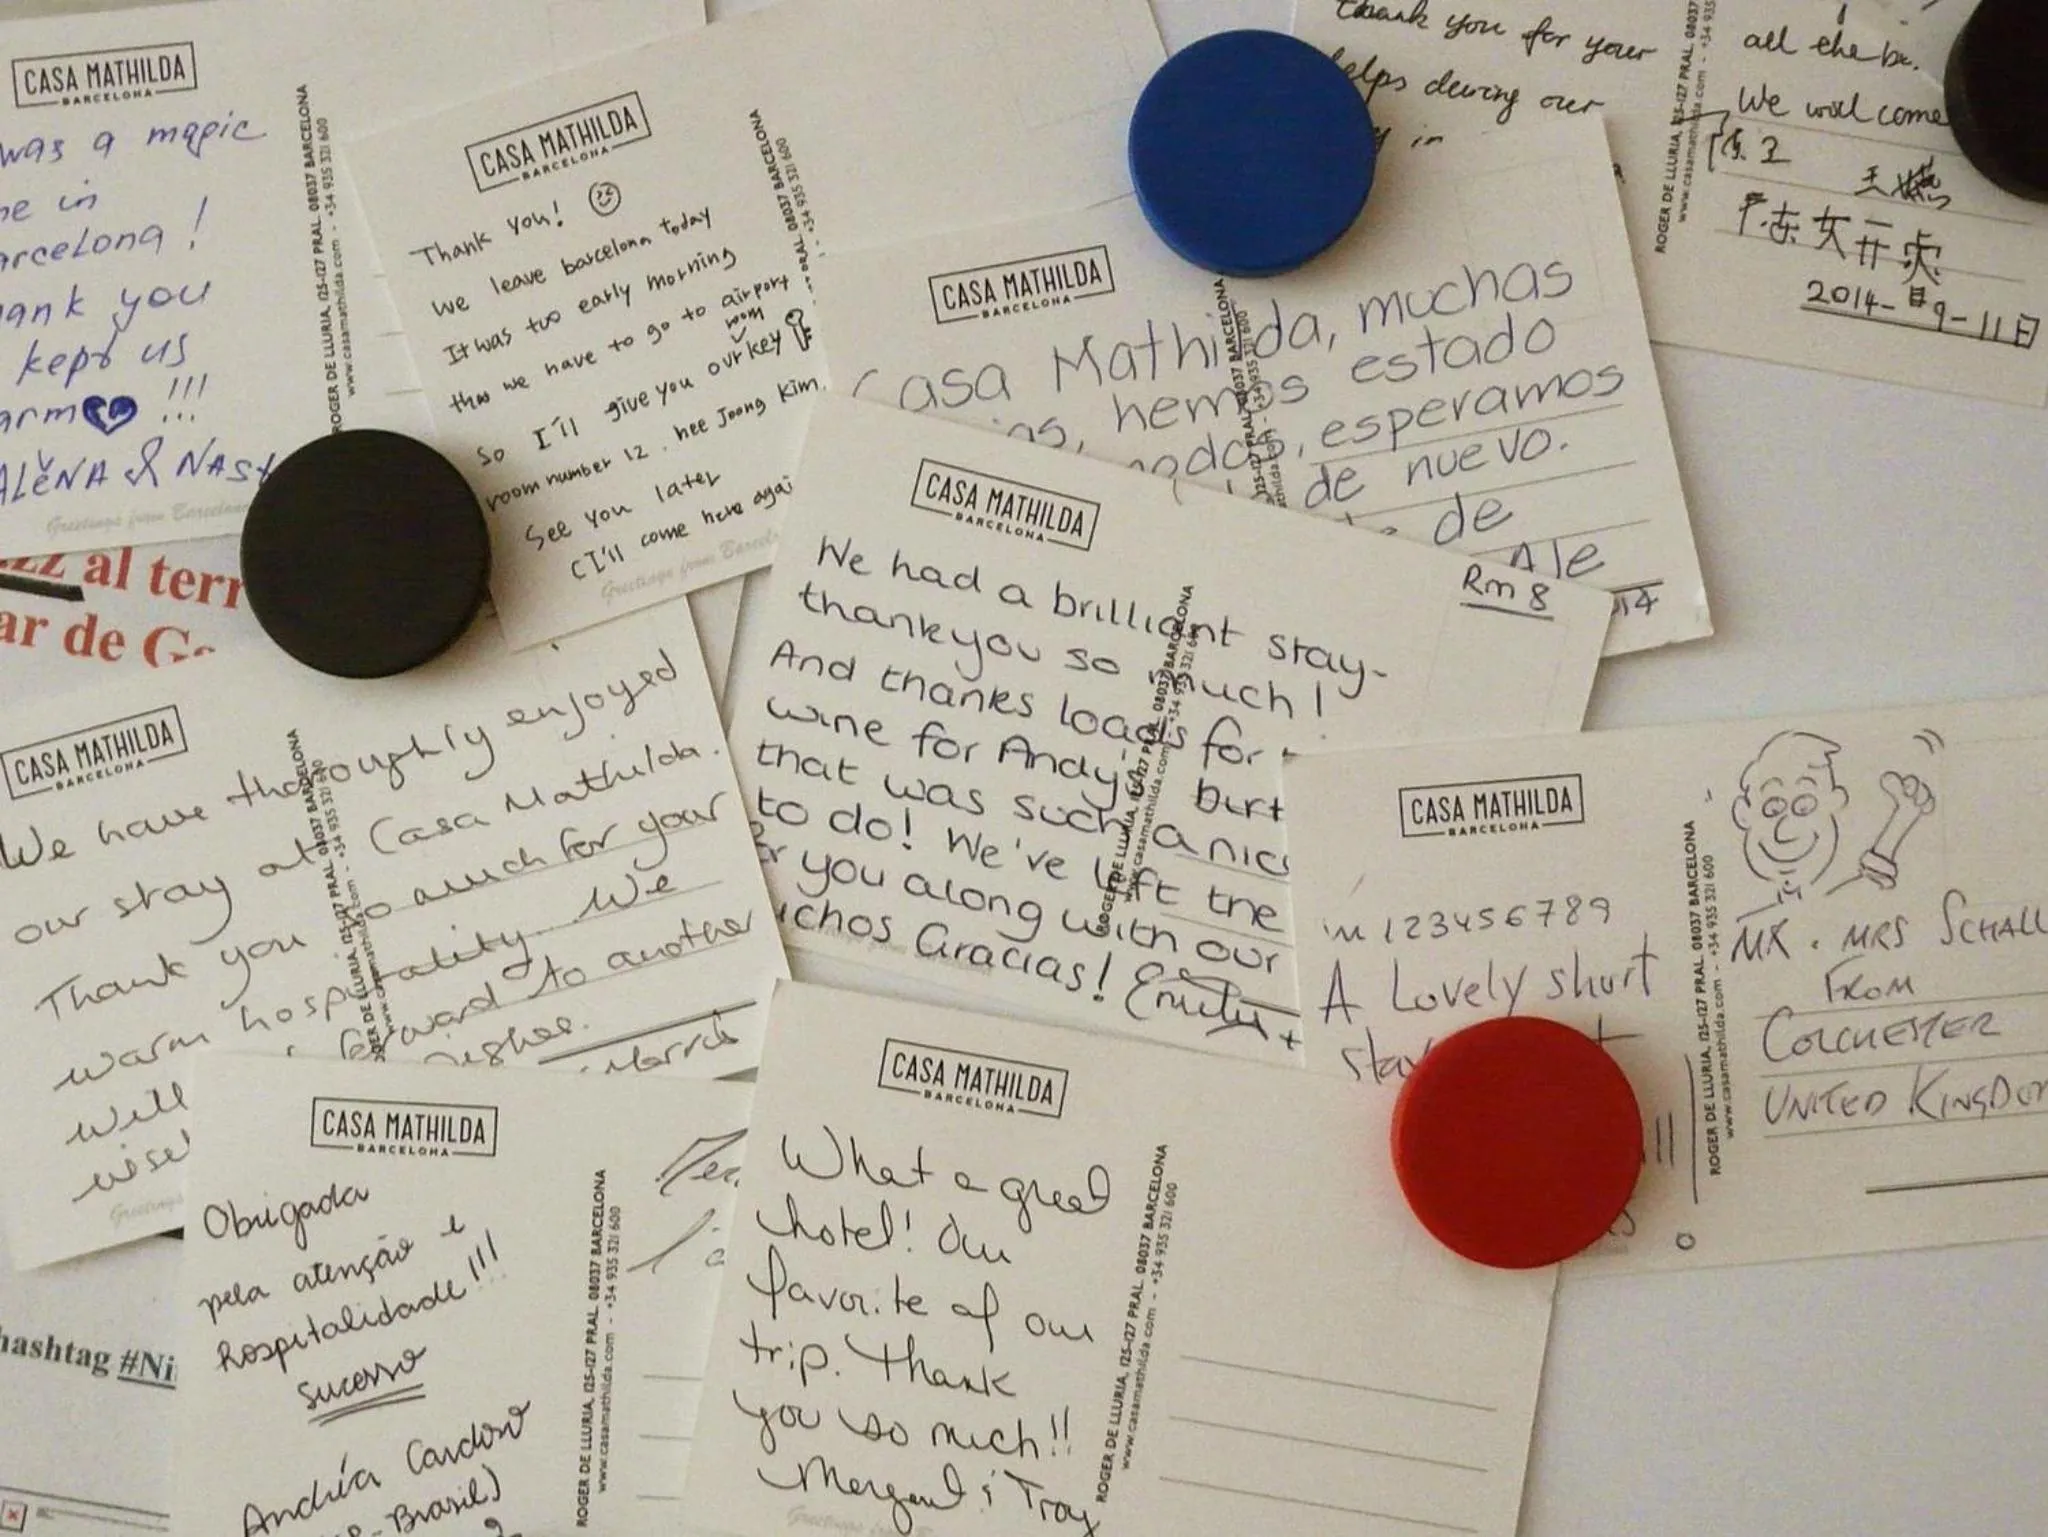 CASA MATHILDA
BARCELONA
was a magic
in
arcelona!
ank you
kept us
arm !!!
ALĕNA & NAST
Greetings from Barcelona
ROGER DE LLURIA, 125-127 PRAL. 08037 BARCELONA
www.casamathilda.com - +34 935 321 600
CASA MATHILDA
BARCELONA
Thank you!
We leave barcelona today
It was too early morning
that we have to go to airport
room
So I'll give you our key
room number 12. hee Joong Kim.
See you later
(I'll come here agai
Greetings from Barcelo
08037 BARCELONA
935 321 600
thank you for your
elps during our
in
all the
We will come
2014-9-11日
ROGER DE LLURIA, 125-127 PRAL. 08037
www.casamathilda.com - +34 935
CASA MATHILDA
BARCELONA
Casa Mathilda, muchas
hemos estado
esperamos
de nuevo.
de
Ale
14
al terr
ar de G
CASA MATHILDA
BARCELONA
We had a brilliant stay-
thankyou so much!
And thanks loads for
wine for Andy's birt
that was such a nic
to do! We've left the
or you along with our
uchos Gracias! Emily +
Rm 8
ROGER DE LLURIA, 125-127 PRAL. 08037 BARCELONA
www.casamathilda.com - +34 935 321 600
CASA MATHILDA
BARCELONA
We have thoroughly enjoyed
our stay at Casa Mathilda.
Thank you so much for your
warm hospitality We
will forward to another
Morris
Greetings
CASA MATHILDA
BARCELONA
123456789
A Lovely short
stay
MR . MRS SCHALL
FROM
COLCHESTER
UNITED KINGDOM
ROGER DE LLURIA, 125-127 PRAL. 08037 BARCELONA
www.casamathilda.com - +34 935 321 600
CASA MATHILDA
BARCELONA
Obrigada
pela atenção e
hospitalidade!!!
Sucesso
Andréa Cardoso
- Brasil)
ROGER DE LLURIA, 125-127 PRAL. 08037 BARCELONA
www.casamathilda.com - +34 935 321 600
CASA MATHILDA
BARCELONA
What a great
hotel! Our
favorite of our
trip. Thank
you so much!!
Margaret & Troy
Greetings from B
ROGER DE LLURIA, 125-127 PRAL. 08037 BARCELONA
www.casamathilda.com - +34 935 321 600
hashtag #Ni